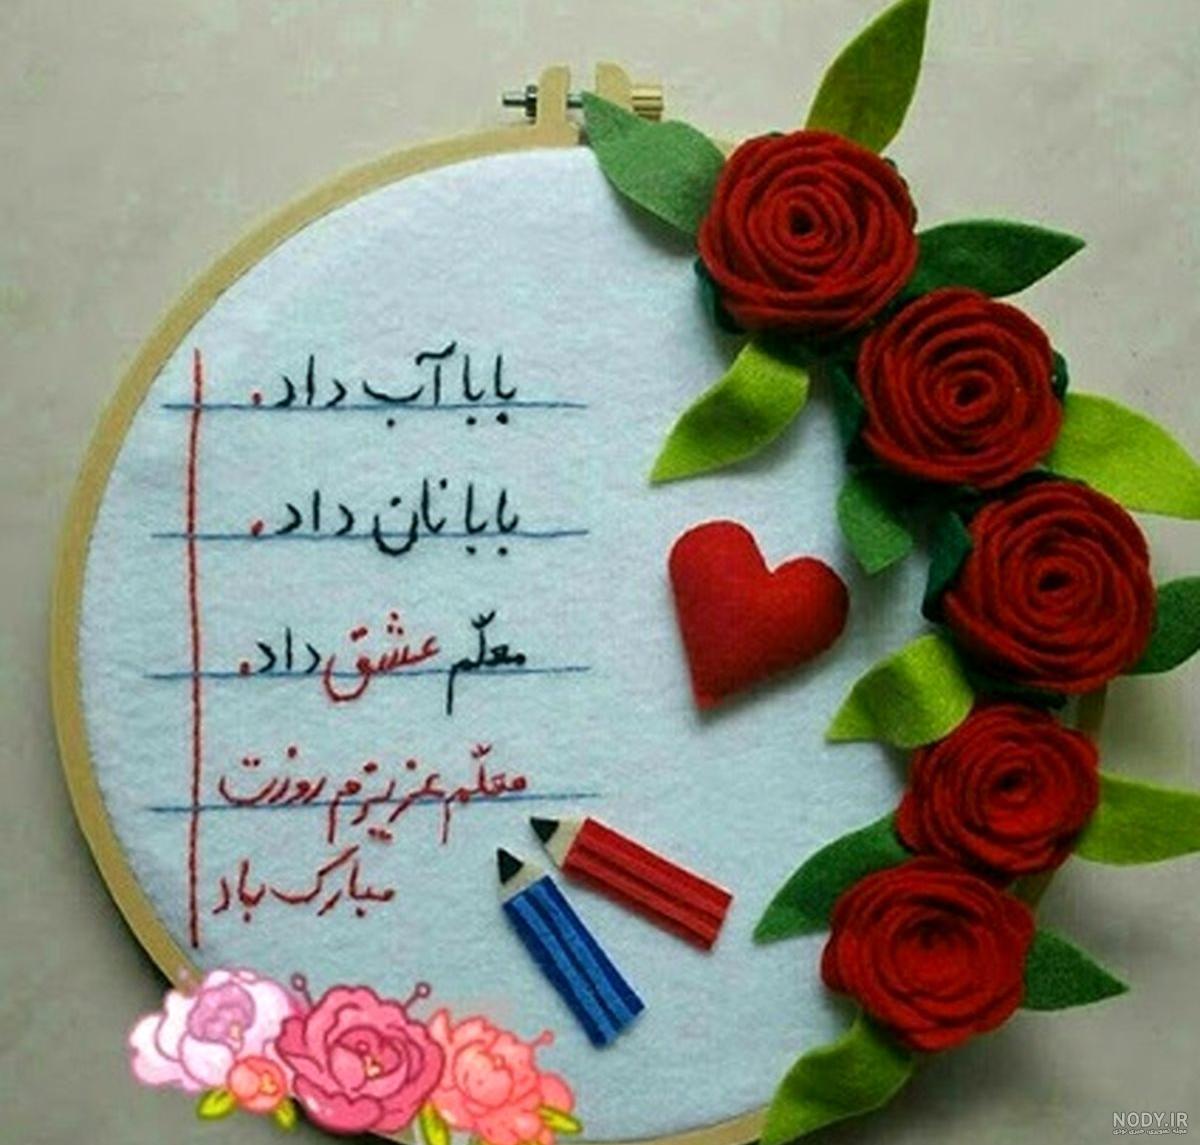 بابا آب داد.
بابا نان داد.
معلّم عشق داد.
معلّم عزیزم روزت
مبارک باد
NODY.IR